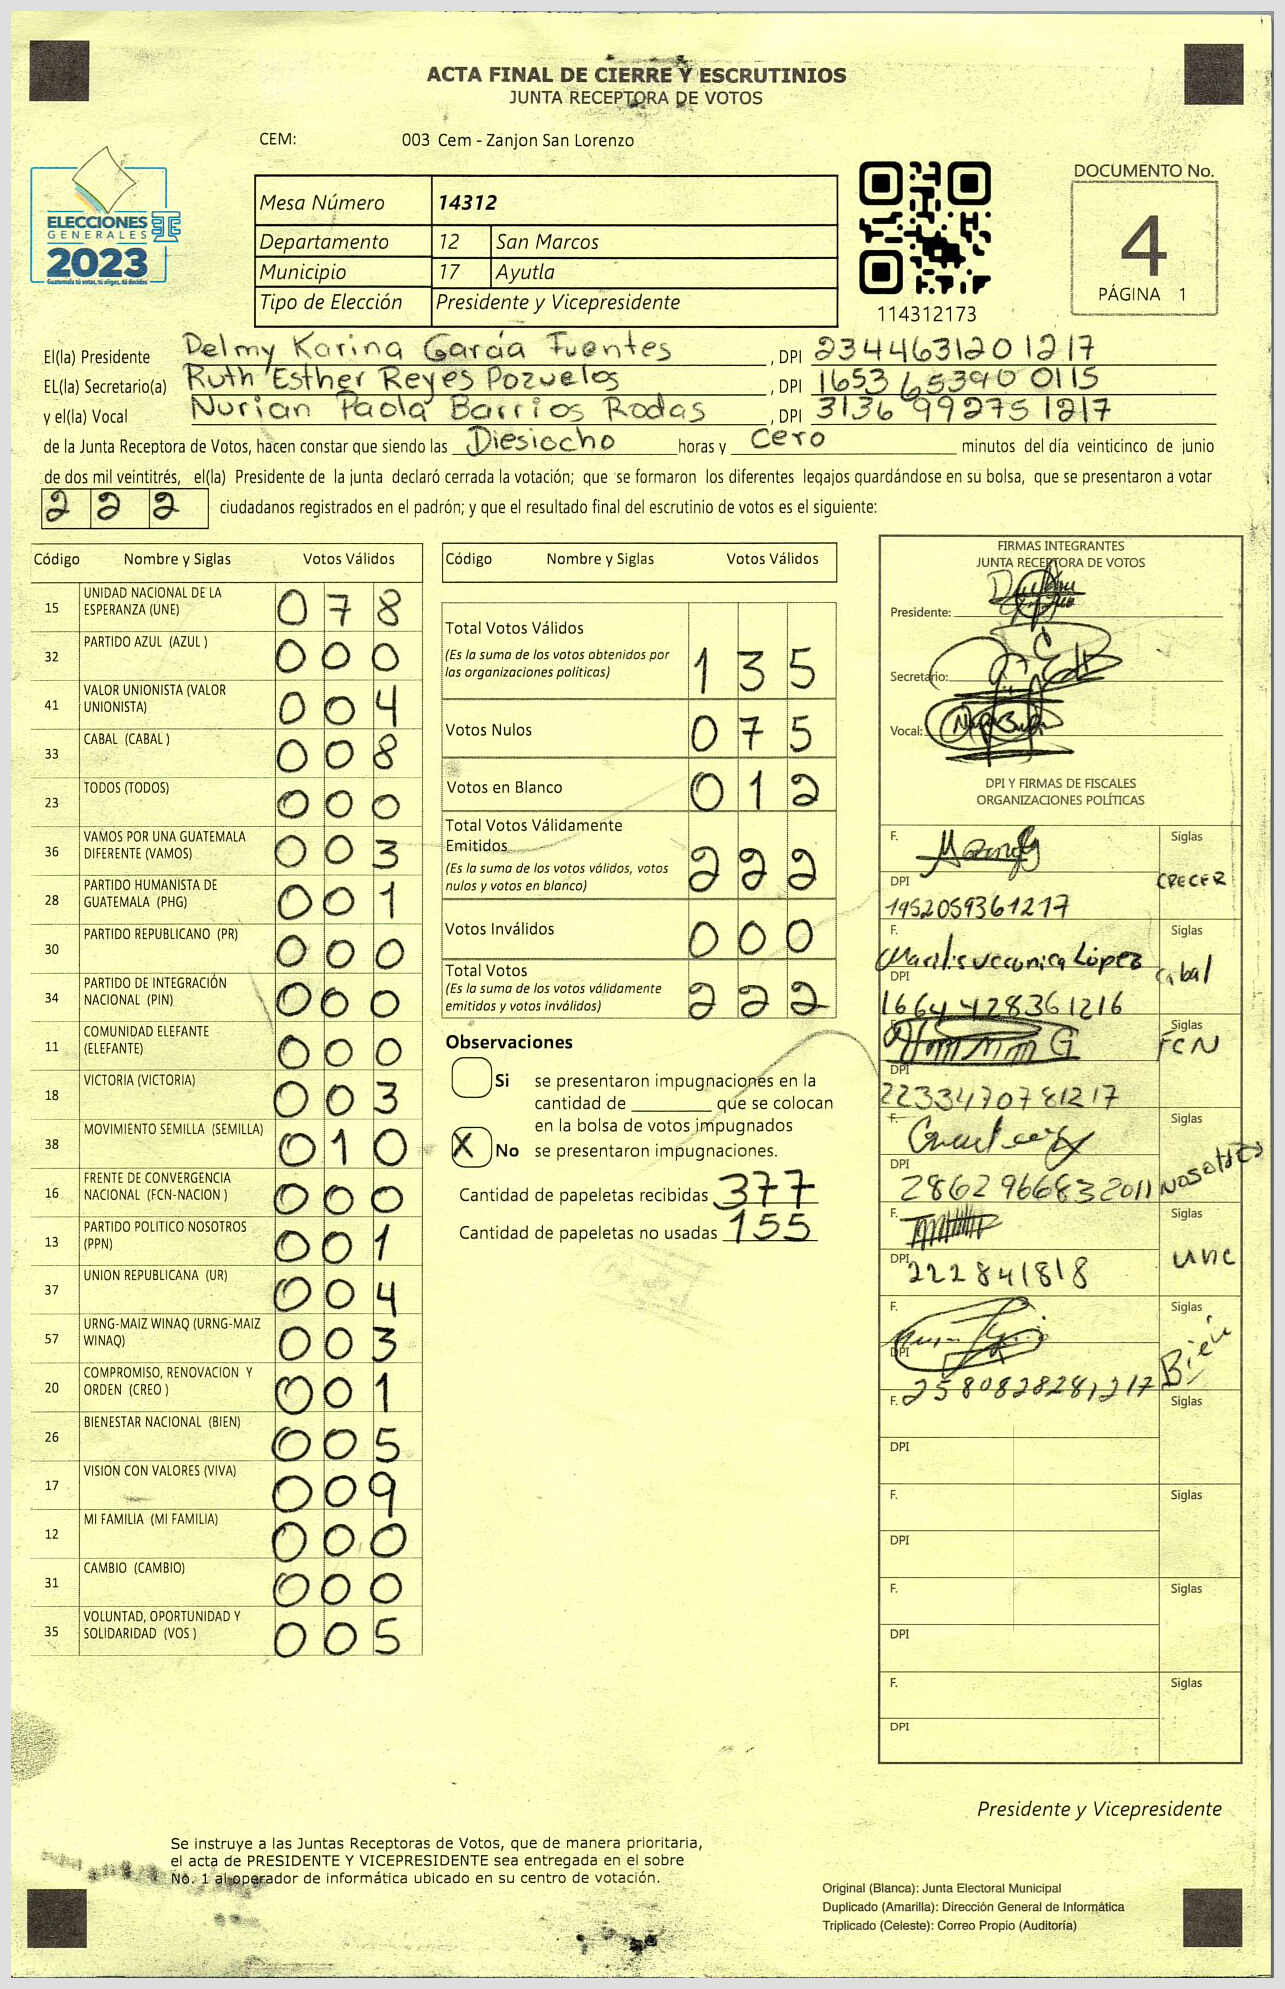 ACTA FINAL DE CIERRE Y ESCRUTINIOS
JUNTA RECEPTORA DE VOTOS
CEM: 003 Cem - Zanjon San Lorenzo
ELECCIONES
GENERALES
2023
Guatemala tú votas, tú eliges, tú decides
Mesa Número 14312
Departamento 12 San Marcos
Municipio 17 Ayutla
Tipo de Elección Presidente y Vicepresidente
114312173
DOCUMENTO No.
4
PÁGINA 1
El(la) Presidente Delmy Karina García Fuentes, DPI 2344631201217
EL(la) Secretario(a) Ruth Esther Reyes Pozuelos, DPI 1653653900115
y el(la) Vocal Nurian Paola Barrios Rodas, DPI 3136992751217
de la Junta Receptora de Votos, hacen constar que siendo las Diesiocho horas y Cero minutos del día veinticinco de junio
de dos mil veintitrés, el(la) Presidente de la junta declaró cerrada la votación; que se formaron los diferentes legajos guardándose en su bolsa, que se presentaron a votar
222 ciudadanos registrados en el padrón; y que el resultado final del escrutinio de votos es el siguiente:
Código Nombre y Siglas Votos Válidos
15 UNIDAD NACIONAL DE LA ESPERANZA (UNE) 078
32 PARTIDO AZUL (AZUL ) 000
41 VALOR UNIONISTA (VALOR UNIONISTA) 004
33 CABAL (CABAL ) 008
23 TODOS (TODOS) 000
36 VAMOS POR UNA GUATEMALA DIFERENTE (VAMOS) 003
28 PARTIDO HUMANISTA DE GUATEMALA (PHG) 001
30 PARTIDO REPUBLICANO (PR) 000
34 PARTIDO DE INTEGRACIÓN NACIONAL (PIN) 000
11 COMUNIDAD ELEFANTE (ELEFANTE) 000
18 VICTORIA (VICTORIA) 003
38 MOVIMIENTO SEMILLA (SEMILLA) 010
16 FRENTE DE CONVERGENCIA NACIONAL (FCN-NACION ) 000
13 PARTIDO POLITICO NOSOTROS (PPN) 001
37 UNION REPUBLICANA (UR) 004
57 URNG-MAIZ WINAQ (URNG-MAIZ WINAQ) 003
20 COMPROMISO, RENOVACION Y ORDEN (CREO ) 001
26 BIENESTAR NACIONAL (BIEN) 005
17 VISION CON VALORES (VIVA) 009
12 MI FAMILIA (MI FAMILIA) 000
31 CAMBIO (CAMBIO) 000
35 VOLUNTAD, OPORTUNIDAD Y SOLIDARIDAD (VOS ) 005
Código Nombre y Siglas Votos Válidos
Total Votos Válidos
(Es la suma de los votos obtenidos por
las organizaciones políticas) 135
Votos Nulos 075
Votos en Blanco 012
Total Votos Válidamente
Emitidos
(Es la suma de los votos válidos, votos
nulos y votos en blanco) 222
Votos Inválidos 000
Total Votos
(Es la suma de los votos válidamente
emitidos y votos inválidos) 222
Observaciones
Si se presentaron impugnaciones en la
cantidad de ________ que se colocan
en la bolsa de votos impugnados
X No se presentaron impugnaciones.
Cantidad de papeletas recibidas 377
Cantidad de papeletas no usadas 155
FIRMAS INTEGRANTES
JUNTA RECEPTORA DE VOTOS
Presidente:
Secretario:
Vocal:
DPI Y FIRMAS DE FISCALES
ORGANIZACIONES POLÍTICAS
F. Siglas
CRECER
DPI
1952059361217
F. Siglas
Marilis Veronica López Cabal
DPI
1664428361216
F. Siglas
FCN
DPI
2233470781217
F. Siglas
DPI
2862966832011 NOSOTROS
F. Siglas
une
DPI 222841818
F. Siglas
Bien
DPI
2580828281217
F. Siglas
DPI
F. Siglas
DPI
F. Siglas
DPI
F. Siglas
DPI
Presidente y Vicepresidente
Se instruye a las Juntas Receptoras de Votos, que de manera prioritaria,
el acta de PRESIDENTE Y VICEPRESIDENTE sea entregada en el sobre
No. 1 al operador de informática ubicado en su centro de votación.
Original (Blanca): Junta Electoral Municipal
Duplicado (Amarilla): Dirección General de Informática
Triplicado (Celeste): Correo Propio (Auditoría)